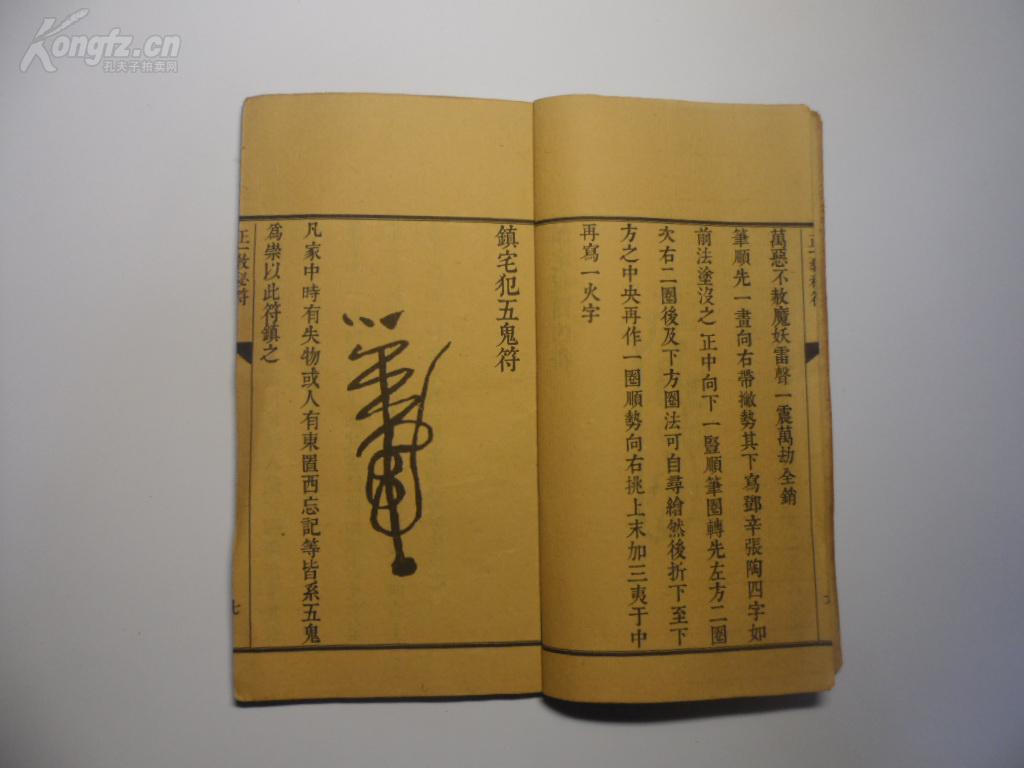 Kongfz.cn
孔夫子拍卖网
萬惡不赦魔妖雷聲一震萬劫全銷
筆順先一畫向右帶撇勢其下寫鄧辛張陶四字如
前法塗沒之正中向下一豎順筆圈轉先左方二圈
次右二圈後及下方圈法可自尋繪然後折下至下
方之中央再作一圈順勢向右挑上末加三夷于中
再寫一火字
鎮宅犯五鬼符
凡家中時有失物或人有東置西忘記等皆系五鬼
為祟以此符鎮之
正一教秘符
七